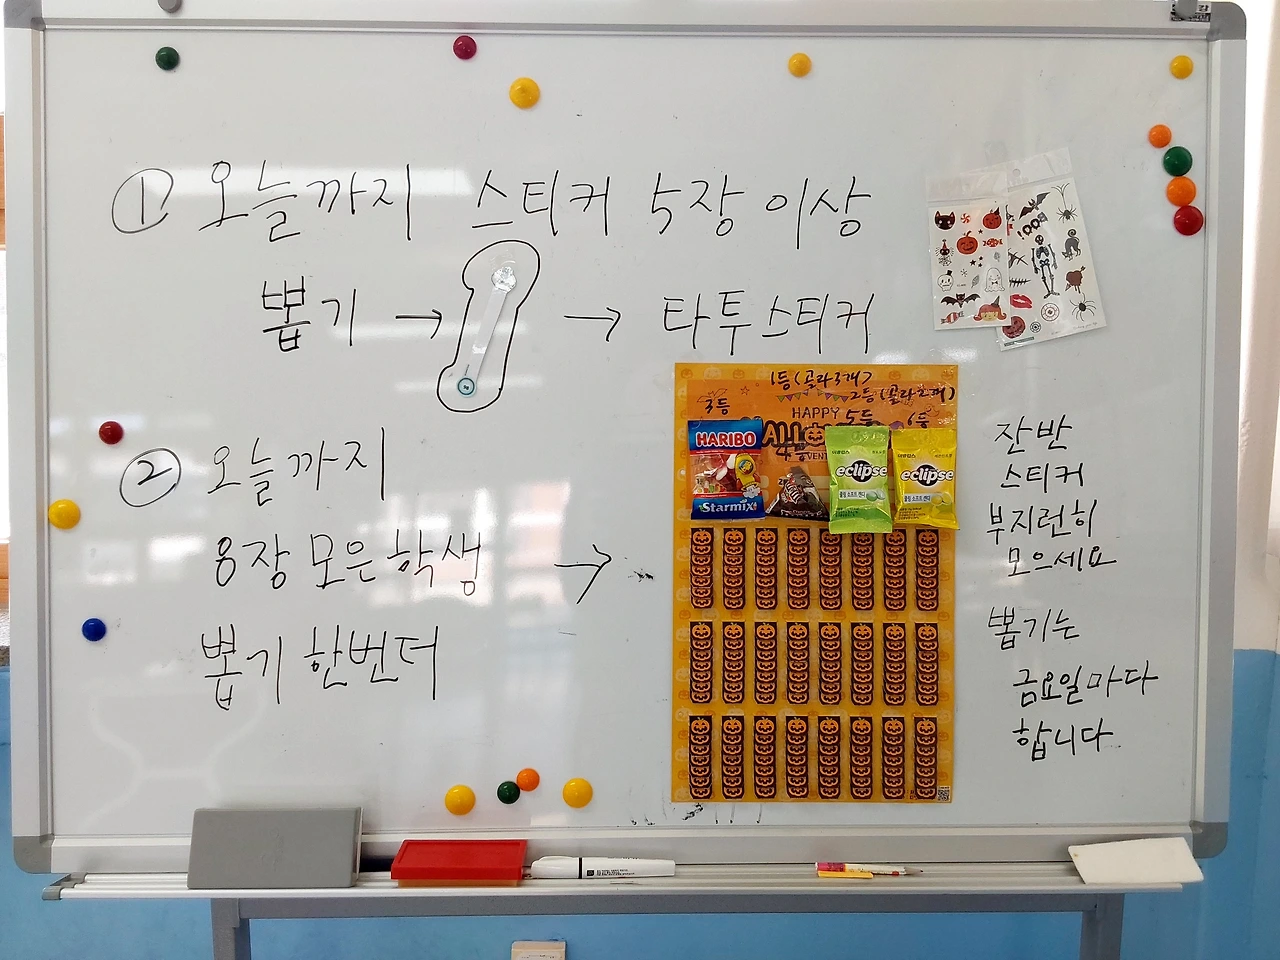 ① 오늘까지 스티커 5장 이상
뽑기 → → 타투스티커
② 오늘까지
8장 모은 학생 →
뽑기 한번더
BOO!
1등(골라3개)
2등(골라2개)
3등
HAPPY
5등
6등
4등
HARIBO
Starmix
eclipse
eclipse
잔반
스티커
부지런히
모으세요
뽑기는
금요일마다
합니다